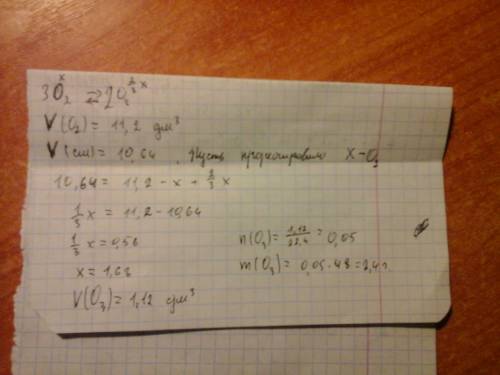 3O₂ ⇄ 2O₃
x ⅔x
V(O₂) = 11,2 дм³
V(см) = 10,64 , Пусть X - O₂
10,64 = 11,2 - x + ⅔x
⅓x = 11,2 - 10,64
⅓x = 0,56
x = 1,68
V(O₃) = 1,12 дм³
n(O₃) = 1,12/22,4 = 0,05
m(O₃) = 0,05 · 48 = 2,4 г.